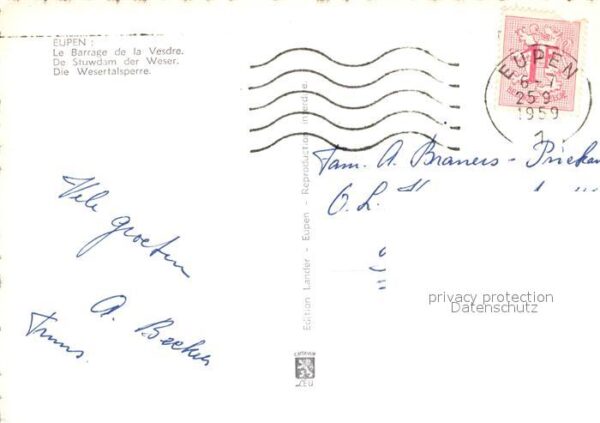 EUPEN :
Le Barrage de la Vesdre.
De Stuwdam der Weser.
Die Wesertalsperre.
1F
EUPEN
6-7
25 9
1959
1
Fam. A.
O. L.
Vele groeten
A.
Truus.
Edition Lander - Eupen - Reproduction interdite.
privacy protection
Datenschutz